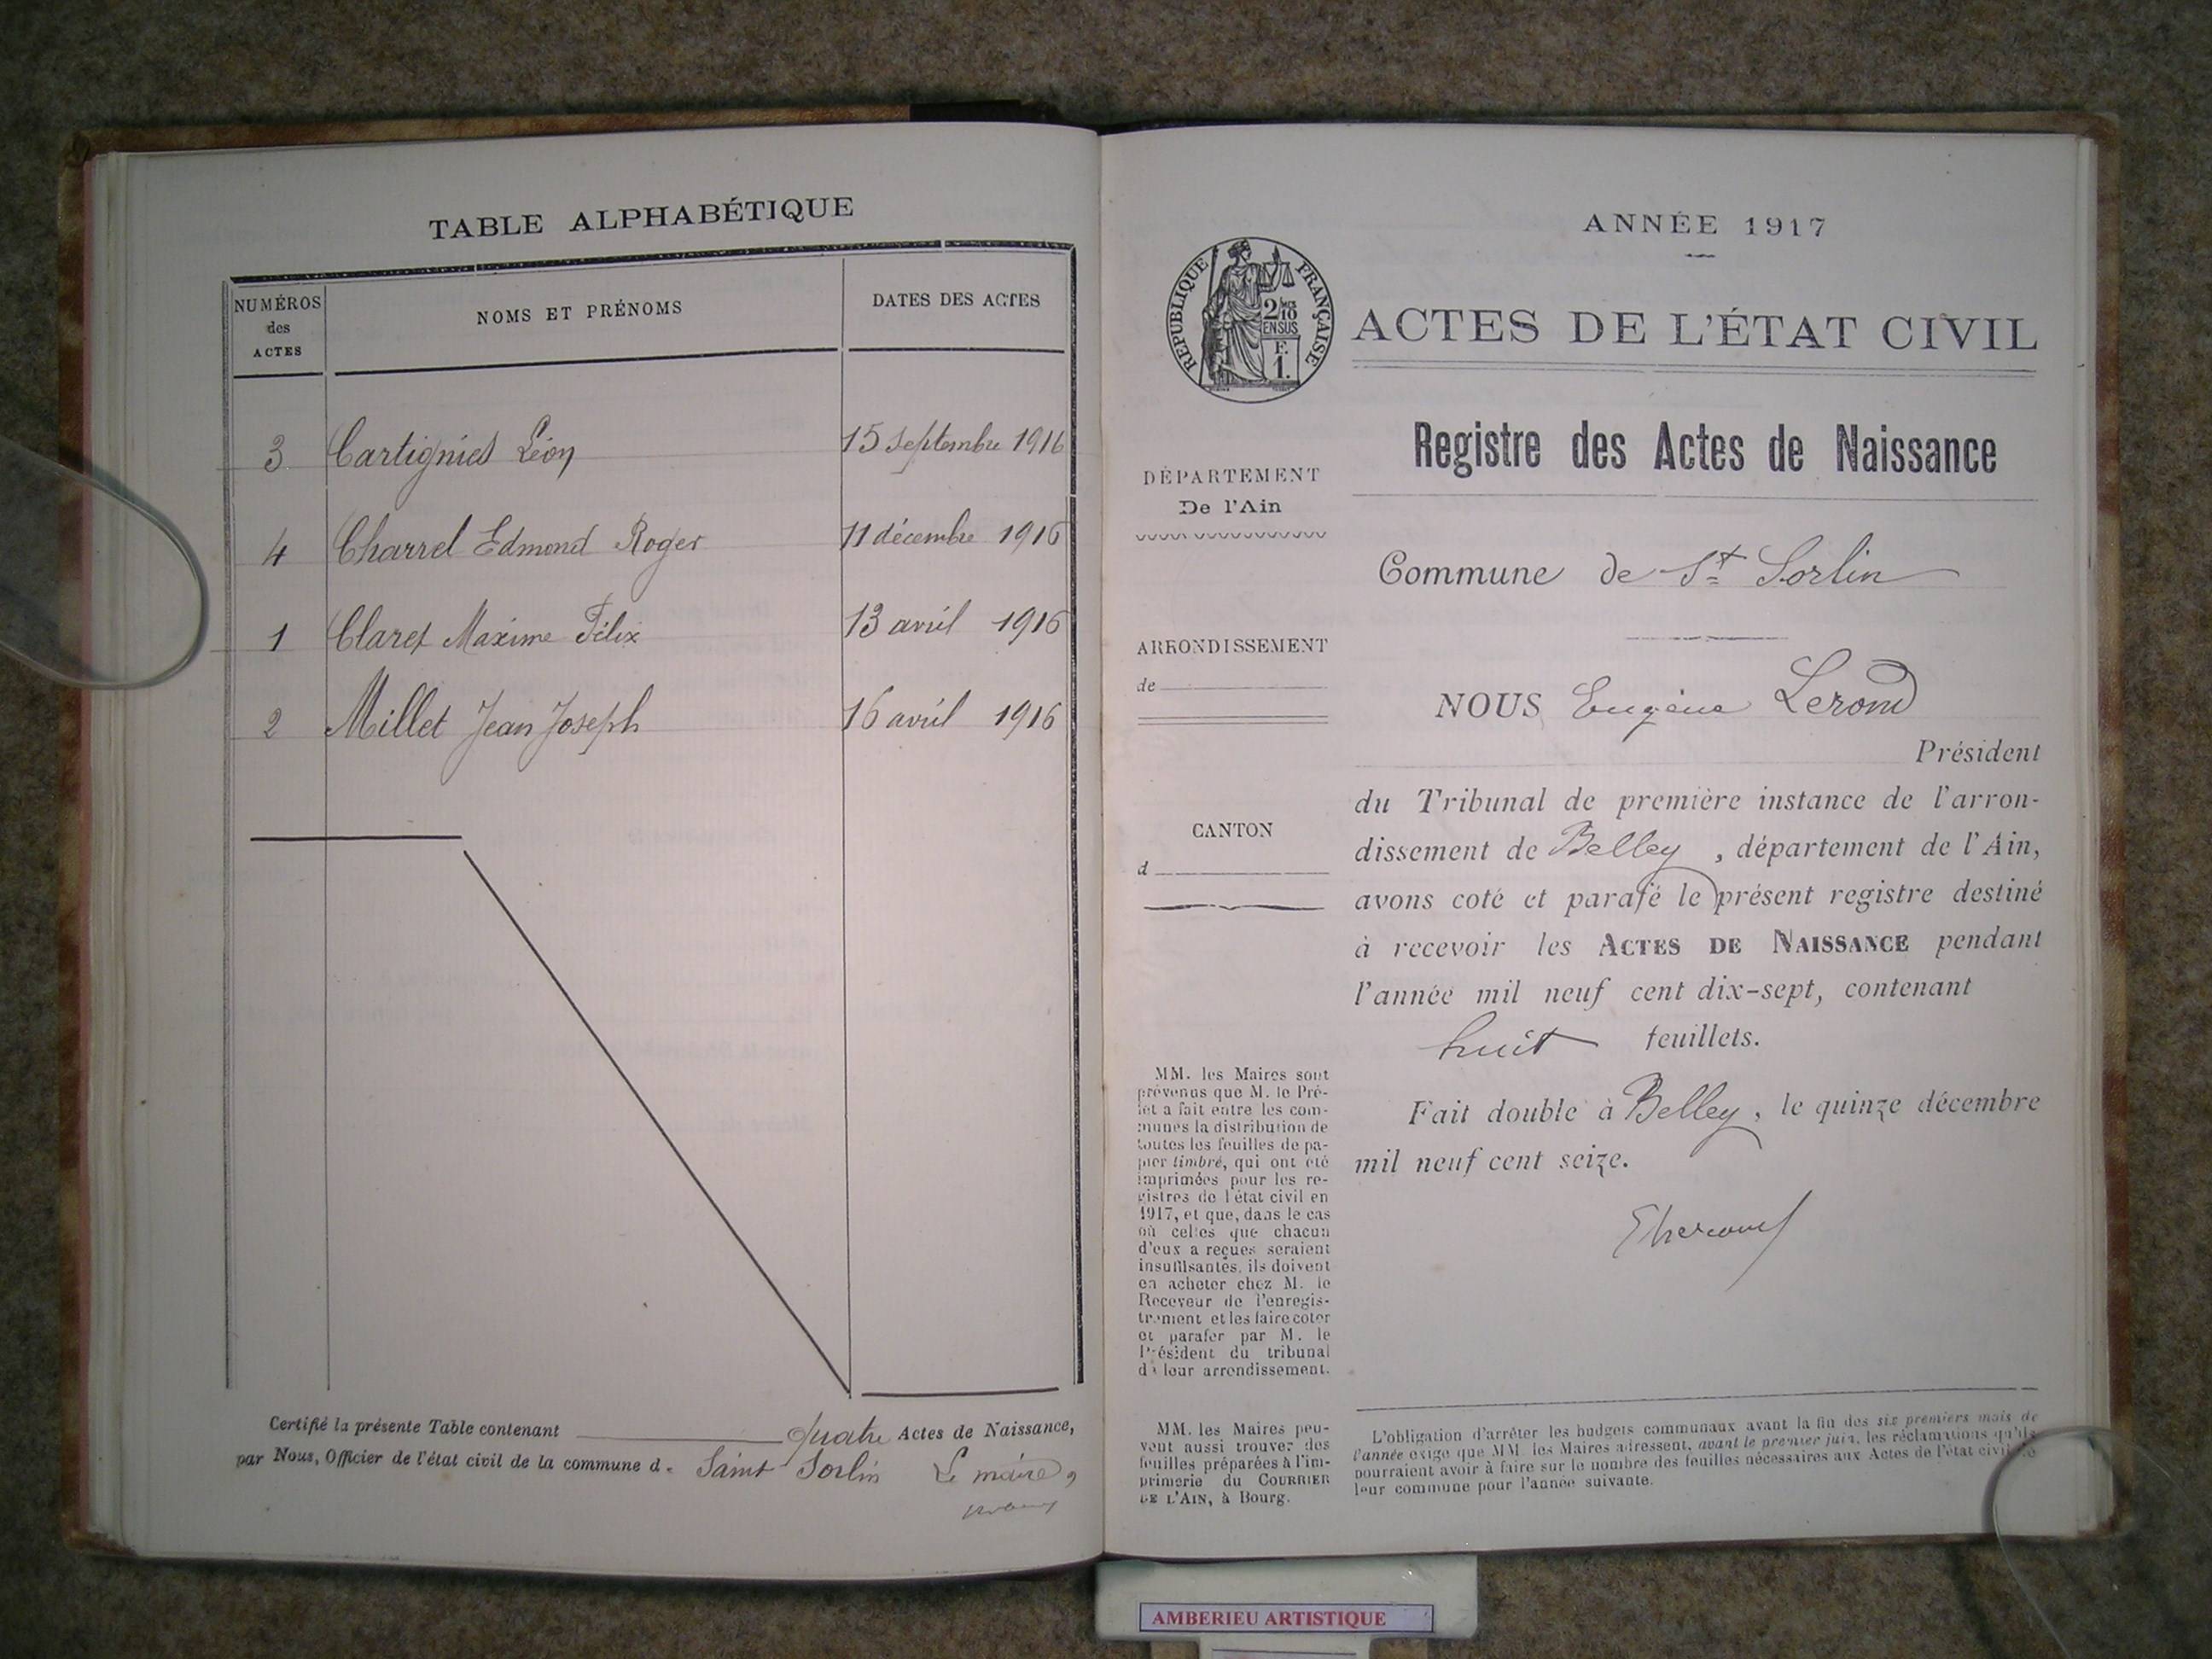 TABLE ALPHABÉTIQUE
NUMÉROS des ACTES
NOMS ET PRÉNOMS
DATES DES ACTES
3 Cartignies Léon 15 septembre 1916
4 Charrel Edmond Roger 11 décembre 1916
1 Claret Maxime Félix 13 avril 1916
2 Millet Jean Joseph 16 avril 1916
Certifié la présente Table contenant quatre Actes de Naissance,
par Nous, Officier de l'état civil de la commune d. Saint Sorlin Le maire,
ANNÉE 1917
RÉPUBLIQUE FRANÇAISE
2/10
EN SUS
F.
1.
ACTES DE L'ÉTAT CIVIL
Registre des Actes de Naissance
DÉPARTEMENT
De l'Ain
Commune de St Sorlin
ARRONDISSEMENT
de
NOUS Eugène Lerond
Président
du Tribunal de première instance de l'arron-
dissement de Belley, département de l'Ain,
avons coté et parafé le présent registre destiné
à recevoir les ACTES DE NAISSANCE pendant
l'année mil neuf cent dix-sept, contenant
huit feuillets.
Fait double à Belley, le quinze décembre
mil neuf cent seize.
CANTON
d
MM. les Maires sont
prévenus que M. le Pré-
fet a fait entre les com-
munes la distribution de
toutes les feuilles de pa-
pier timbré, qui ont été
imprimées pour les re-
gistres de l'état civil en
1917, et que, dans le cas
où celles que chacun
d'eux a reçues seraient
insuffisantes, ils doivent
en acheter chez M. le
Receveur de l'enregis-
trement et les faire coter
et parafer par M. le
Président du tribunal
de leur arrondissement.
MM. les Maires peu-
vent aussi trouver des
feuilles préparées à l'im-
primerie du COURRIER
DE L'AIN, à Bourg.
L'obligation d'arrêter les budgets communaux avant la fin des six premiers mois de
l'année exige que MM. les Maires adressent, avant le premier juin, les réclamations qu'ils
pourraient avoir à faire sur le nombre des feuilles nécessaires aux Actes de l'état civil de
leur commune pour l'année suivante.
AMBERIEU ARTISTIQUE